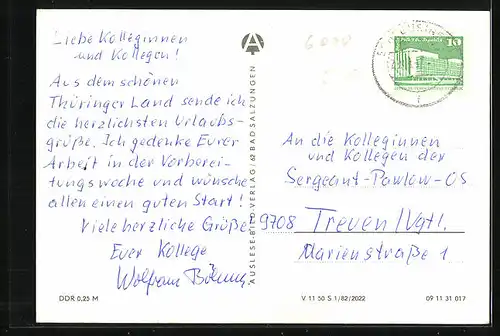 Liebe Kolleginnen
und Kollegen!
Aus dem schönen
Thüringer Land sende ich
die herzlichsten Urlaubs-
grüße. Ich gedenke Eurer
Arbeit in der Vorberei-
tungswoche und wünsche
allen einen guten Start!
Viele herzliche Grüße
Euer Kollege
Wolfram
AUSLESE-BILD-VERLAG / 62 BAD SALZUNGEN
10
An die Kolleginnen
und Kollegen der
Sergeant-Pawlow-OS
9708 Treuen/Vgtl.
Marienstraße 1
DDR 0,25 M
V 11 50 S 1/82/2022
09 11 31 017